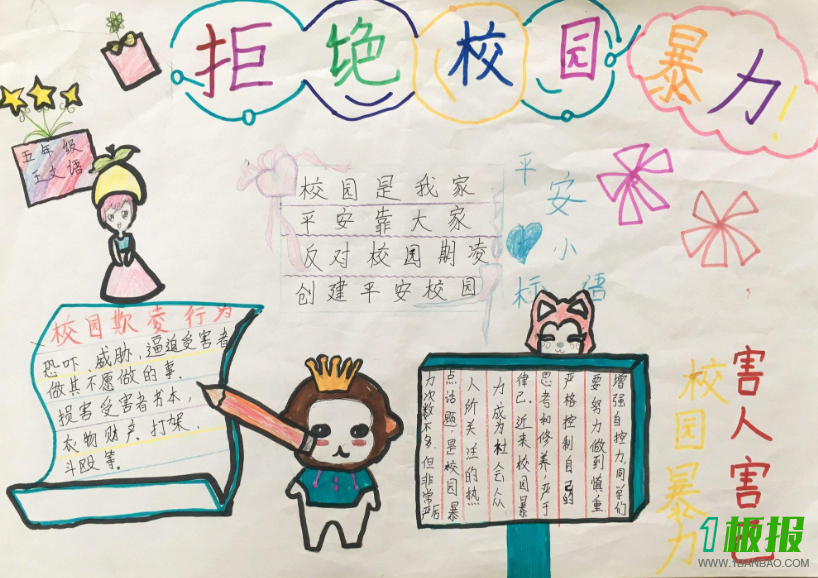 拒绝校园暴力!
五年级
王文语
校园是我家
平安靠大家
反对校园期凌
创建平安校园
平安小标语
校园欺凌行为
恐吓、威胁、逼迫受害者
做其不愿做的事.
损害受害者书本,
衣物财产.打架、
斗殴等.
增强自控力,同学们
要努力做到慎重
严格控制自己的
思考和修养,严于
律己.近来校园暴
力成为社会众
人所关注的热
点话题,是校园暴
力次数不多.但非常严
害人害己
校园暴力
1板报
WWW.1BANBAO.COM